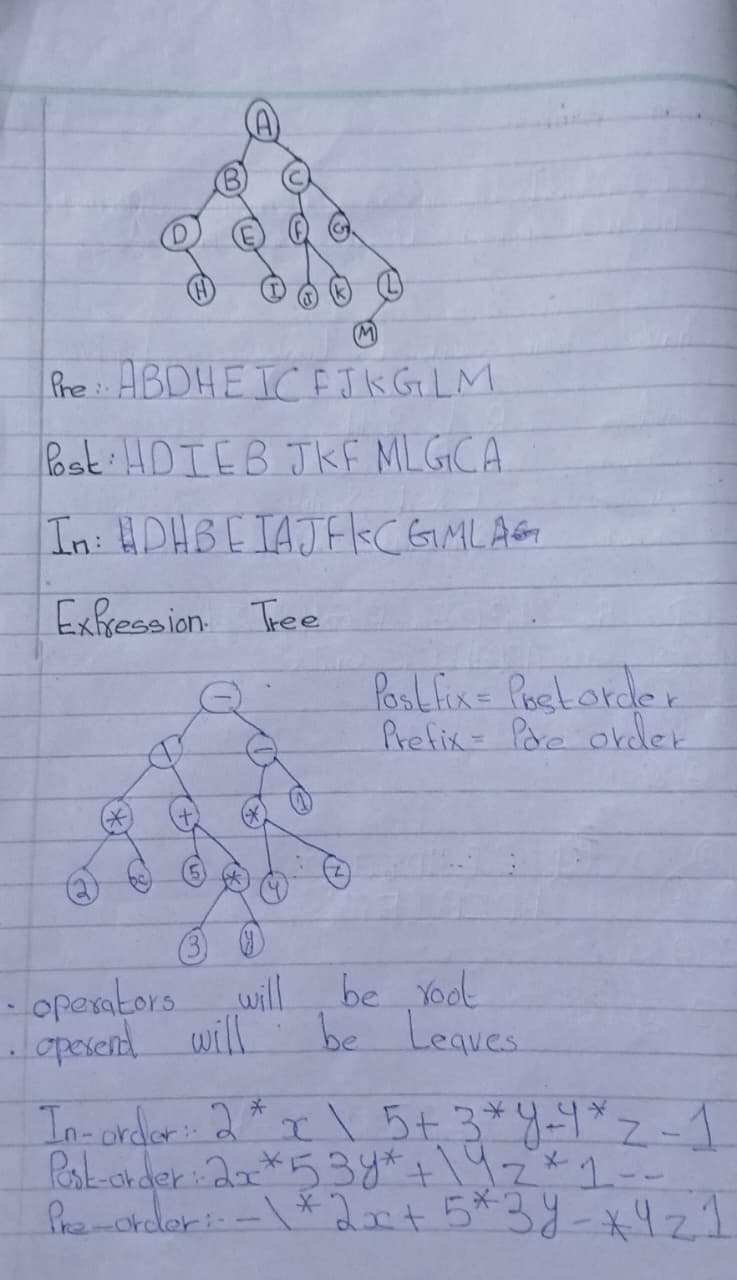 A
B C
D E F G
H I J K L
M
Pre:- ABDHEICFJKGLM
Post: HDIEB JKF MLGCA
In: DHBEIAJFKCGMLA
Expression Tree
-
\ -
* + * 1
2 x 5 * 4 z
3 y
Postfix = Postorder
Prefix = Pre order
. operators will be root
. operend will be Leaves
In-order:- 2*x \ 5+3*y-4*z-1
Post-order:- 2x*53y*+\4z*1--
Pre-order:- -\*2x+5*3y-*4z1